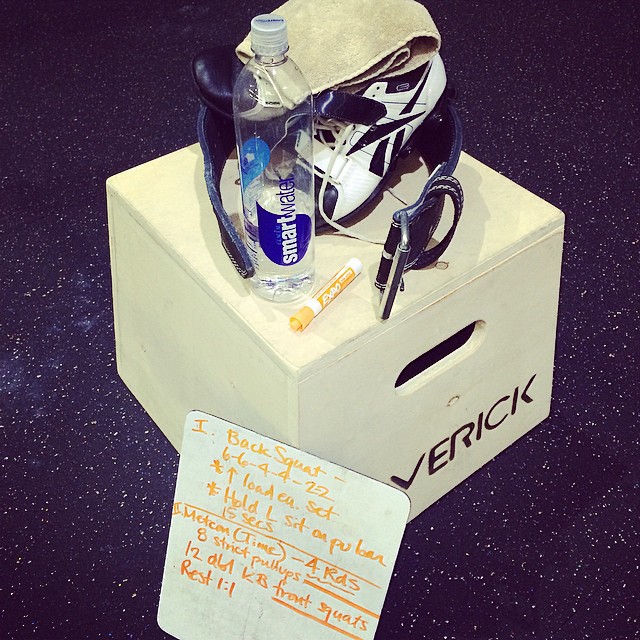 smartwater
EXPO
VERICK
I. Back Squat -
6-6-4-4-2-2
* ↑ load ea. set
* Hold L sit on pu bar
15 secs
II. Metcon (Time) - 4 Rds
8 strict pullups
12 dbl KB front squats
Rest 1:1